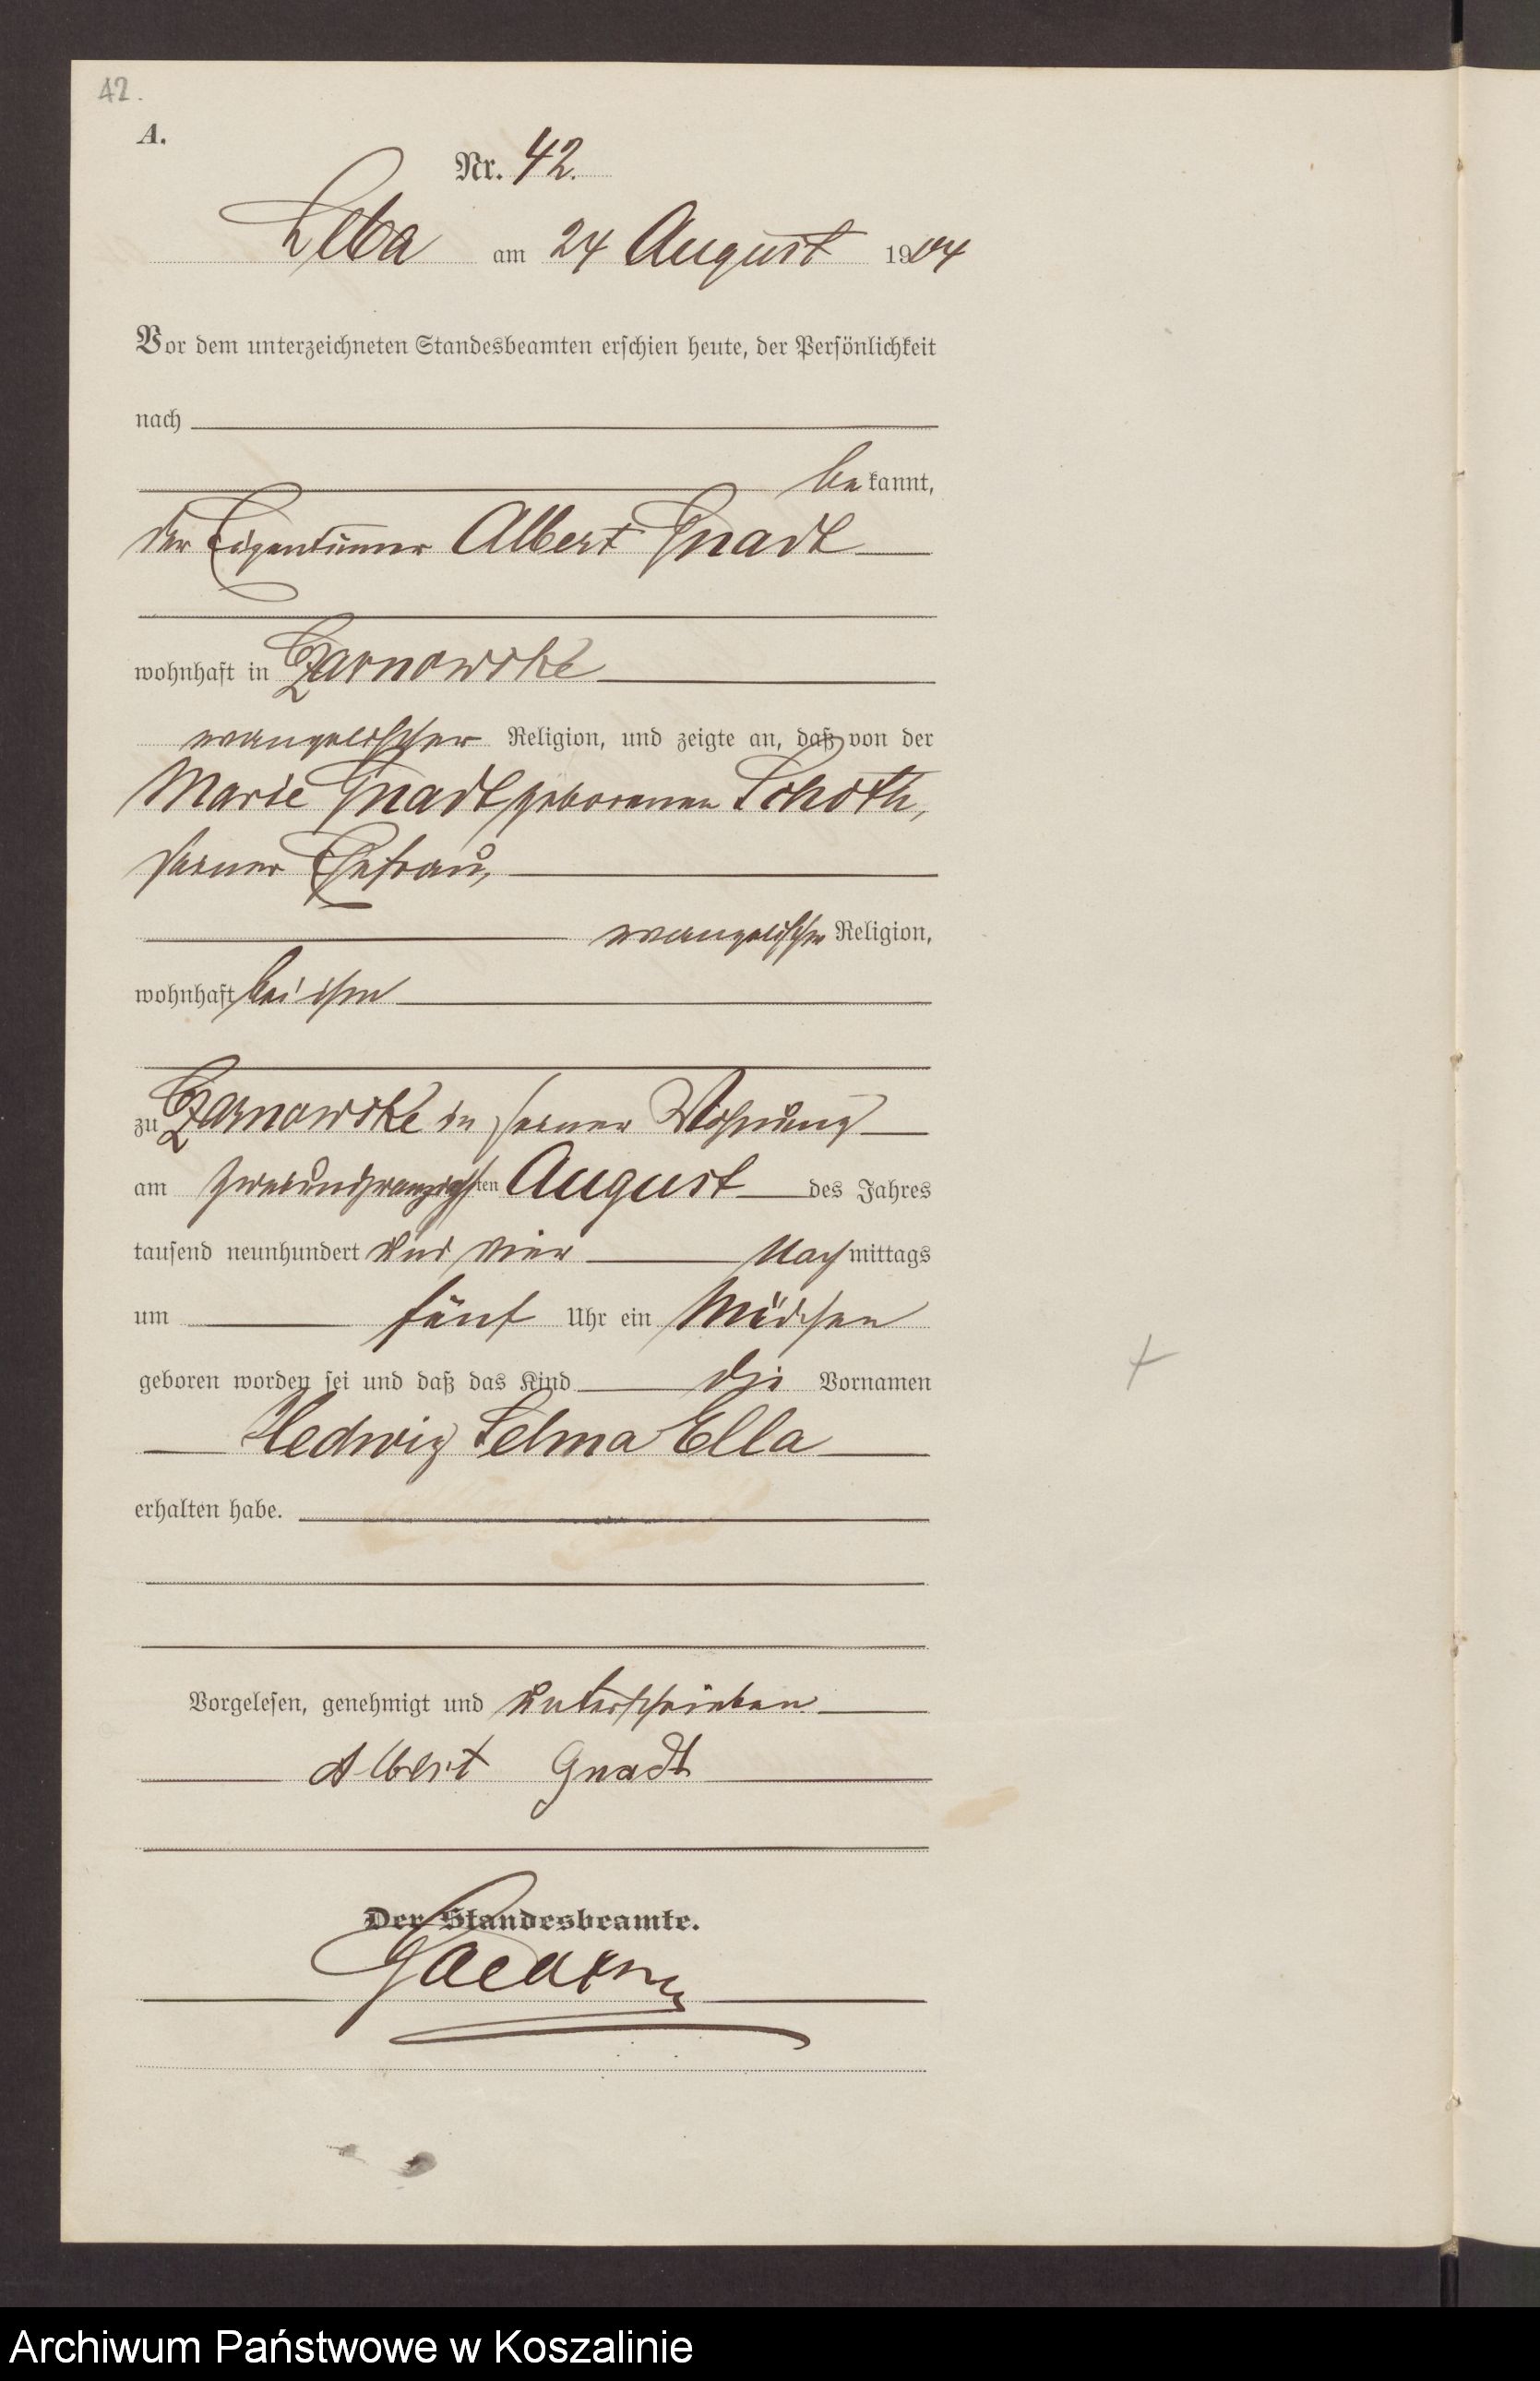 42.
A.
Nr. 42.
Leba am 24 August 1904
Vor dem unterzeichneten Standesbeamten erschien heute, der Persönlichkeit
nach
bekannt,
der Eigentümer Albert Gnadt
wohnhaft in Czarnowske
evangelischer Religion, und zeigte an, daß von der
Marie Gnadt geborenen Schoth,
seiner Ehefrau,
evangelischer Religion,
wohnhaft bei ihm
zu Czarnowske in seiner Wohnung
am zweiundzwanzigsten August des Jahres
tausend neunhundert und vier Nachmittags
um fünf Uhr ein Mädchen
geboren worden sei und daß das Kind die Vornamen
Hedwig Selma Ella
erhalten habe.
Vorgelesen, genehmigt und unterschrieben.
Albert Gnadt
Der Standesbeamte.
Archiwum Państwowe w Koszalinie